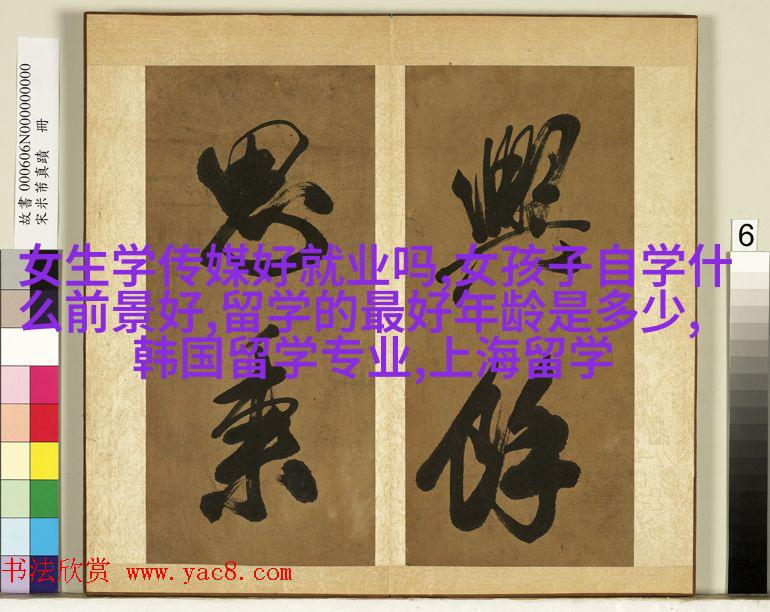 故書 000606N000000000
宋米芾真蹟 冊
6
餘
女生学传媒好就业吗,女孩子自学什
么前景好,留学的最好年龄是多少,
韩国留学专业,上海留学
书法欣赏 www.yac8.com